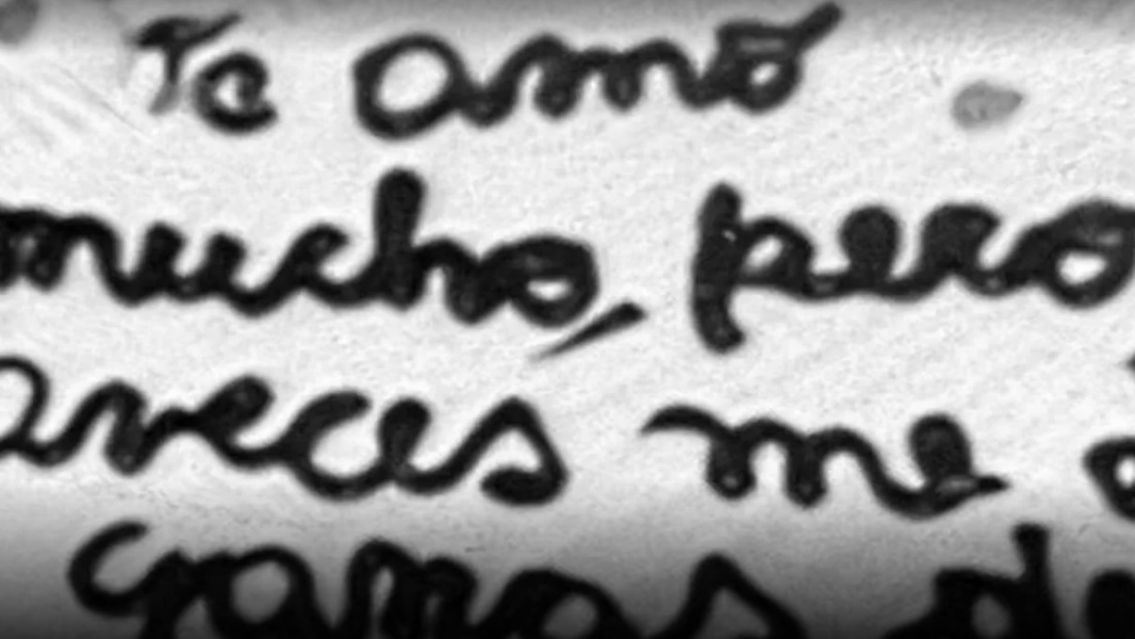 Te amo
mucho, pero
aveces me
ganas de